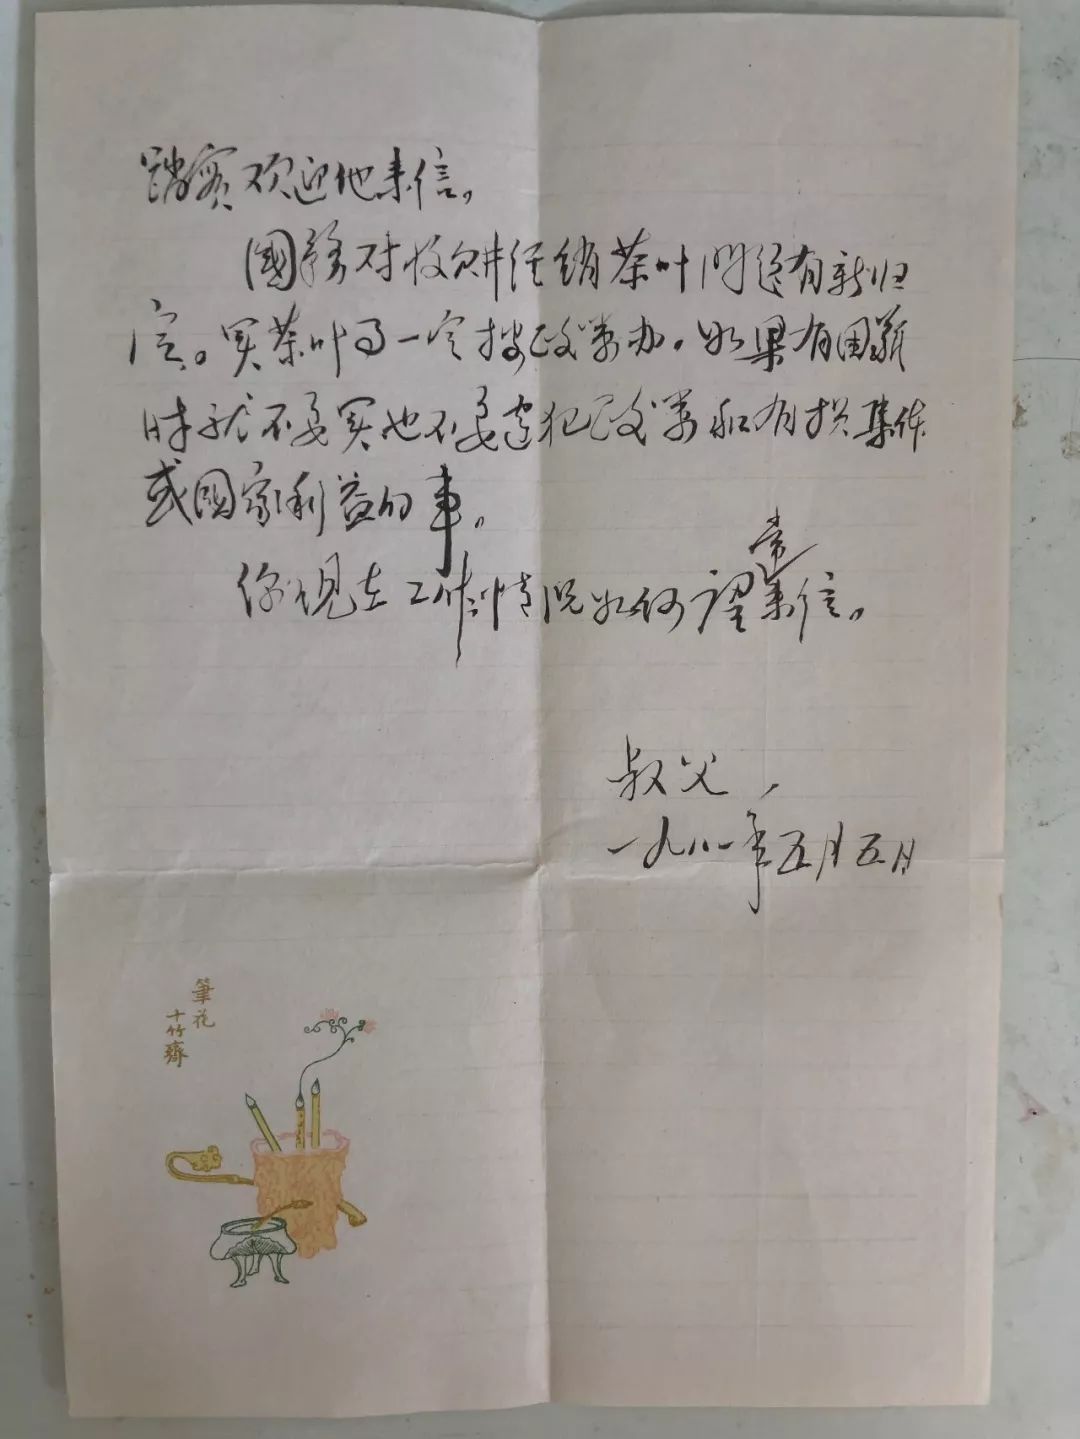 踏实欢迎他来信。
國務对收購经销茶叶问题有新规
定。买茶叶事一定按政策办。如果有困难
时就不要买也不要违犯政策和有损集体
或國家利益的事。
你现在工作情况如何望常来信。
叔父，
一九八一年五月五日
筆花
十竹齋